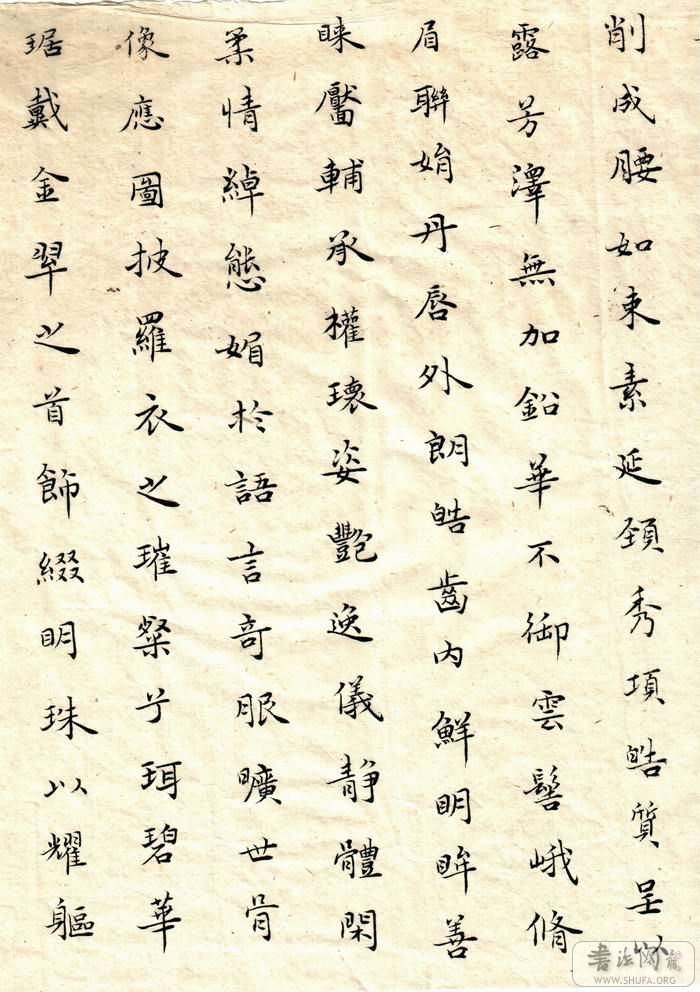 削成腰如束素延頸秀項皓質呈
露芳澤無加鉛華不御雲髻峨脩
眉聯娟丹唇外朗皓齒內鮮明眸善
睞靨輔承權瓌姿艷逸儀靜體閑
柔情綽態媚於語言奇服曠世骨
像應圖披羅衣之璀粲兮珥碧華
琚戴金翠之首飾綴明珠以耀軀
書法网
WWW.SHUFA.ORG